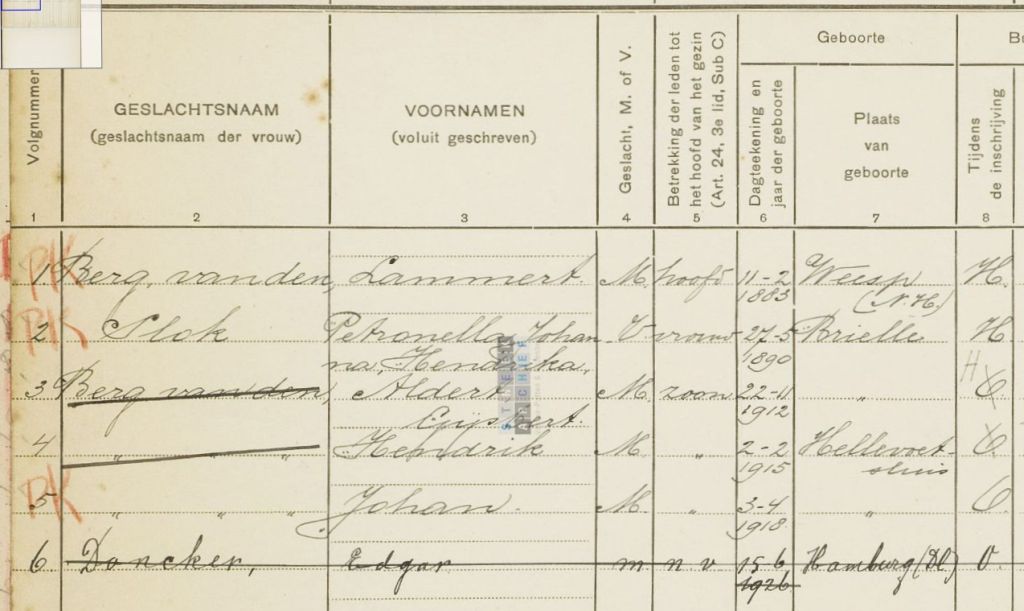 Geboorte
Be
Volgnummer
GESLACHTSNAAM
(geslachtsnaam der vrouw)
VOORNAMEN
(voluit geschreven)
Geslacht, M. of V.
Betrekking der leden tot
het hoofd van het gezin
(Art. 24, 3e lid, Sub C)
Dagteekening en
jaar der geboorte
Plaats
van
geboorte
Tijdens
de inschrijving
1 2 3 4 5 6 7 8
PK 1 Berg, van den, Lammert. M. hoofd 11-2 Weesp H.
1883 (N.H.)
PK 2 Slok Petronella Johan V vrouw 27-5 Brielle H
na Hendrika, 1890 H
3 Berg van den, Aldert M. zoon 22-11 " O
Gijsbert. 1912
4 " " " Hendrik M. " 2-2 Hellevoet- O
1915 sluis
PK 5 " " " Johan. M. " 3-4 " O
1918
6 Doncker, Edgar m n v 15 6 Hamburg (Dl) O.
1926
STREEK
ARCHIEF